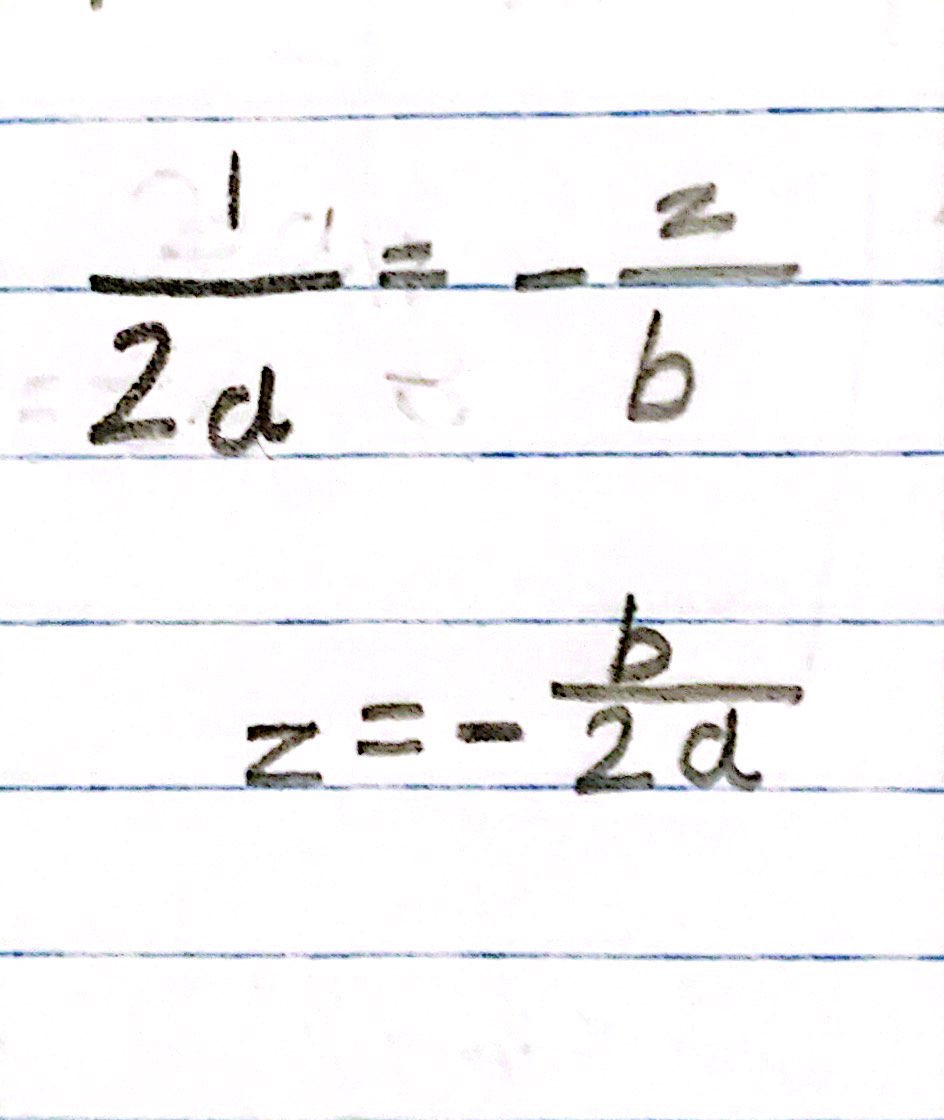 1/2a = - z/b
z = - b/2a